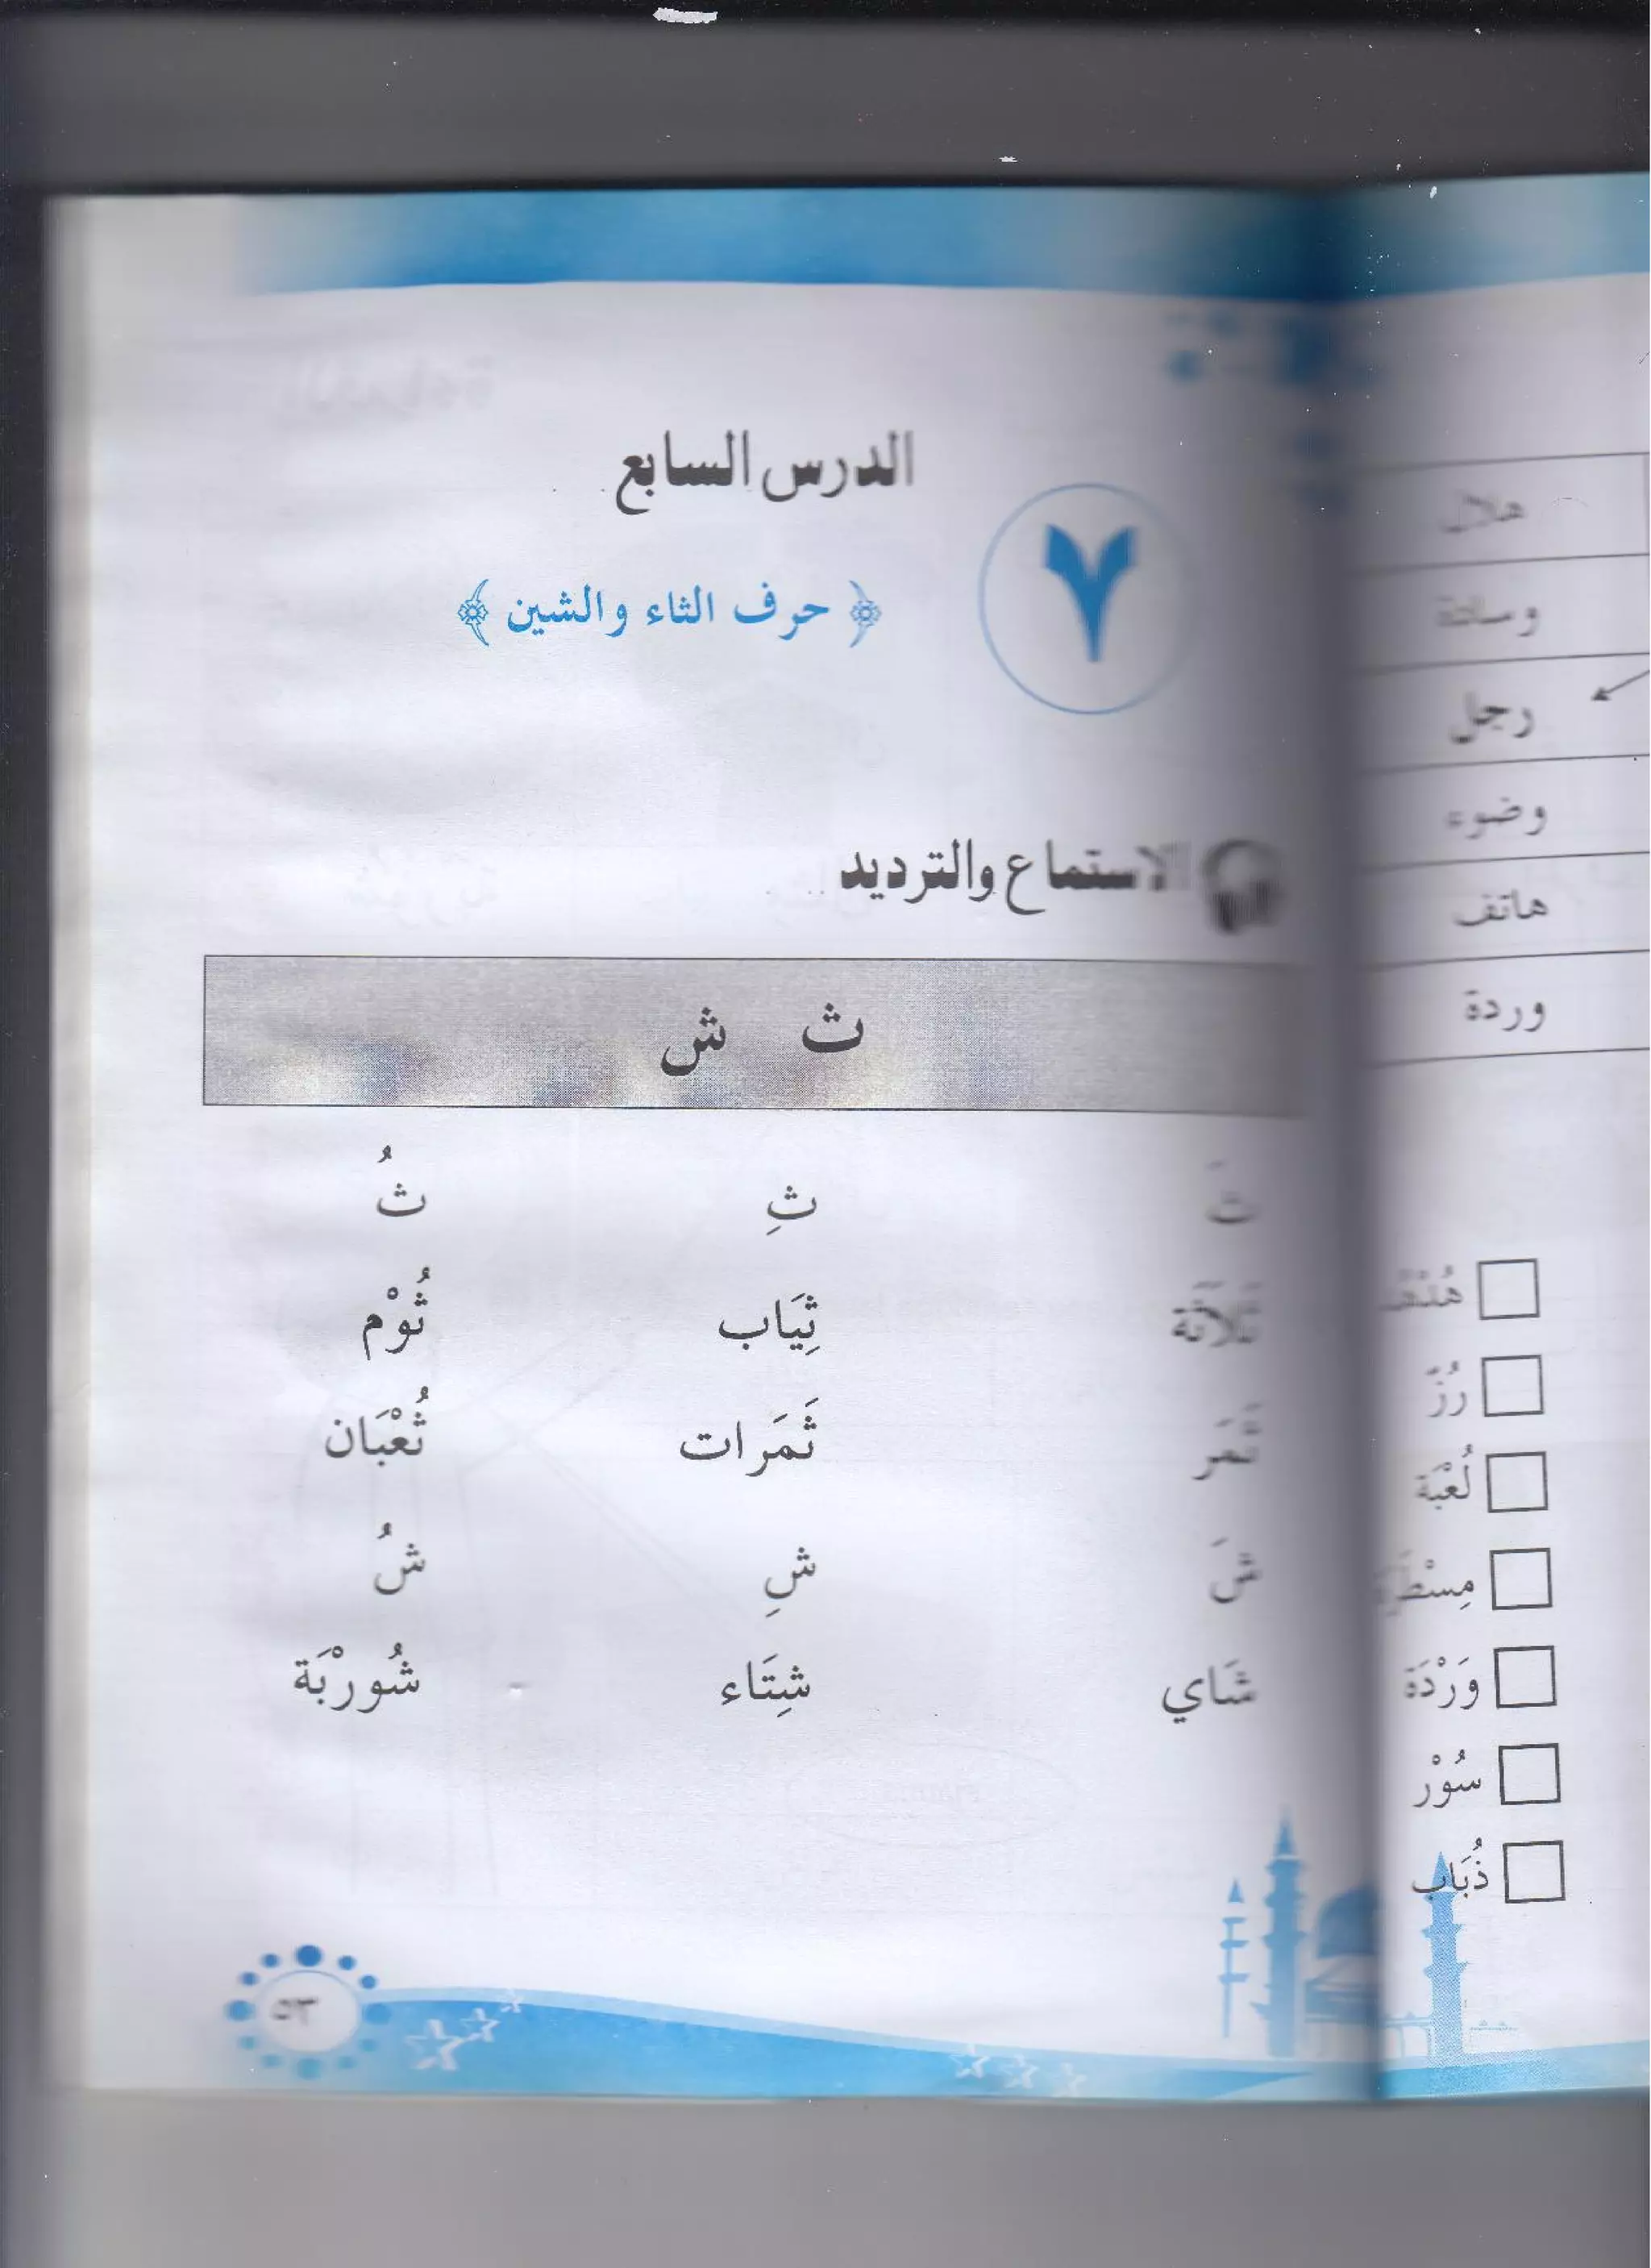 الدرس السابع
٧
﴿ حرف الثاء والشين ﴾
الاستماع والترديد
ث ش
ثَ ثِ ثُ
ثَلَاثَة ثِيَاب ثُوْم
ثَمَر ثَمَرات ثُعْبَان
شَ شِ شُ
شَاي شِتَاء شُورْبَة
٥٣
هلال
وسادة
رجل
وضوء
هاتف
وردة
رُزّ
لُعْبَة
وَرْدَة
سُوْر
ذُبَاب